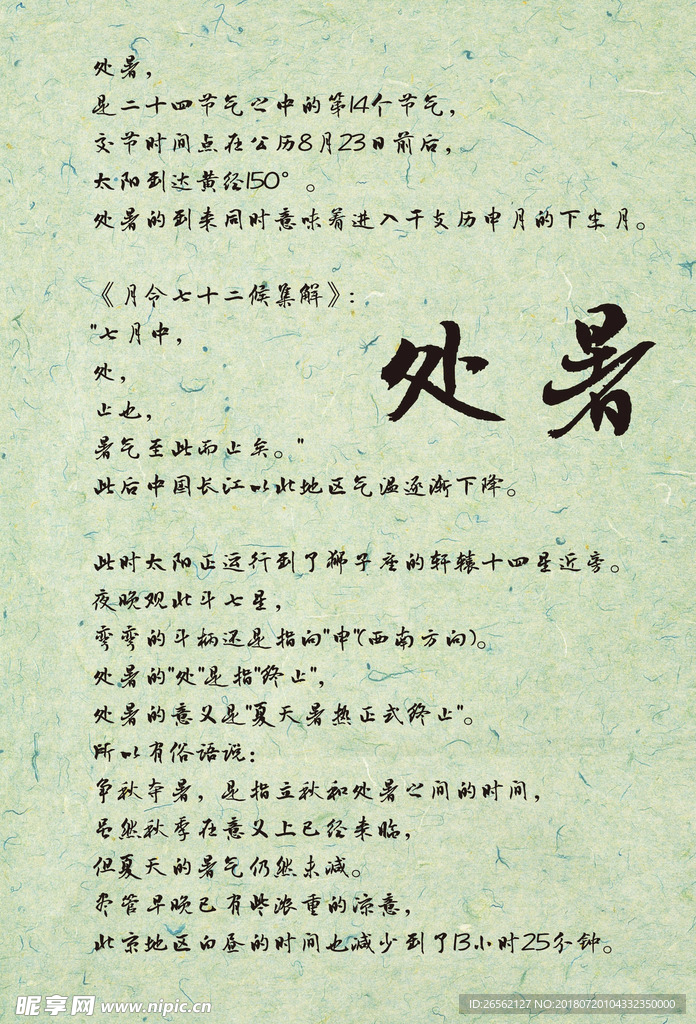 处暑，
是二十四节气之中的第14个节气，
交节时间点在公历8月23日前后，
太阳到达黄经150°。
处暑的到来同时意味着进入干支历申月的下半月。
《月令七十二候集解》：
"七月中，
处，
止也，
暑气至此而止矣。"
此后中国长江以北地区气温逐渐下降。
处暑
此时太阳正运行到了狮子座的轩辕十四星近旁。
夜晚观北斗七星，
弯弯的斗柄还是指向"申"(西南方向)。
处暑的"处"是指"终止"，
处暑的意义是"夏天暑热正式终止"。
所以有俗语说：
争秋夺暑，是指立秋和处暑之间的时间，
虽然秋季在意义上已经来临，
但夏天的暑气仍然未减。
尽管早晚已有些浓重的凉意，
北京地区白昼的时间也减少到了13小时25分钟。
昵享网 www.nipic.cn
ID:26562127 NO:20180720104332350000